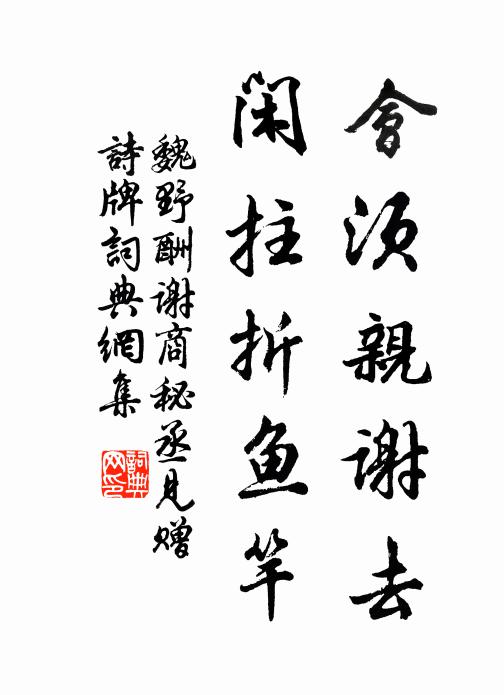 會須親謝去
閑拄折魚竿
魏野酬谢商秘丞見赠
詩牌詞典網集
詞典网印